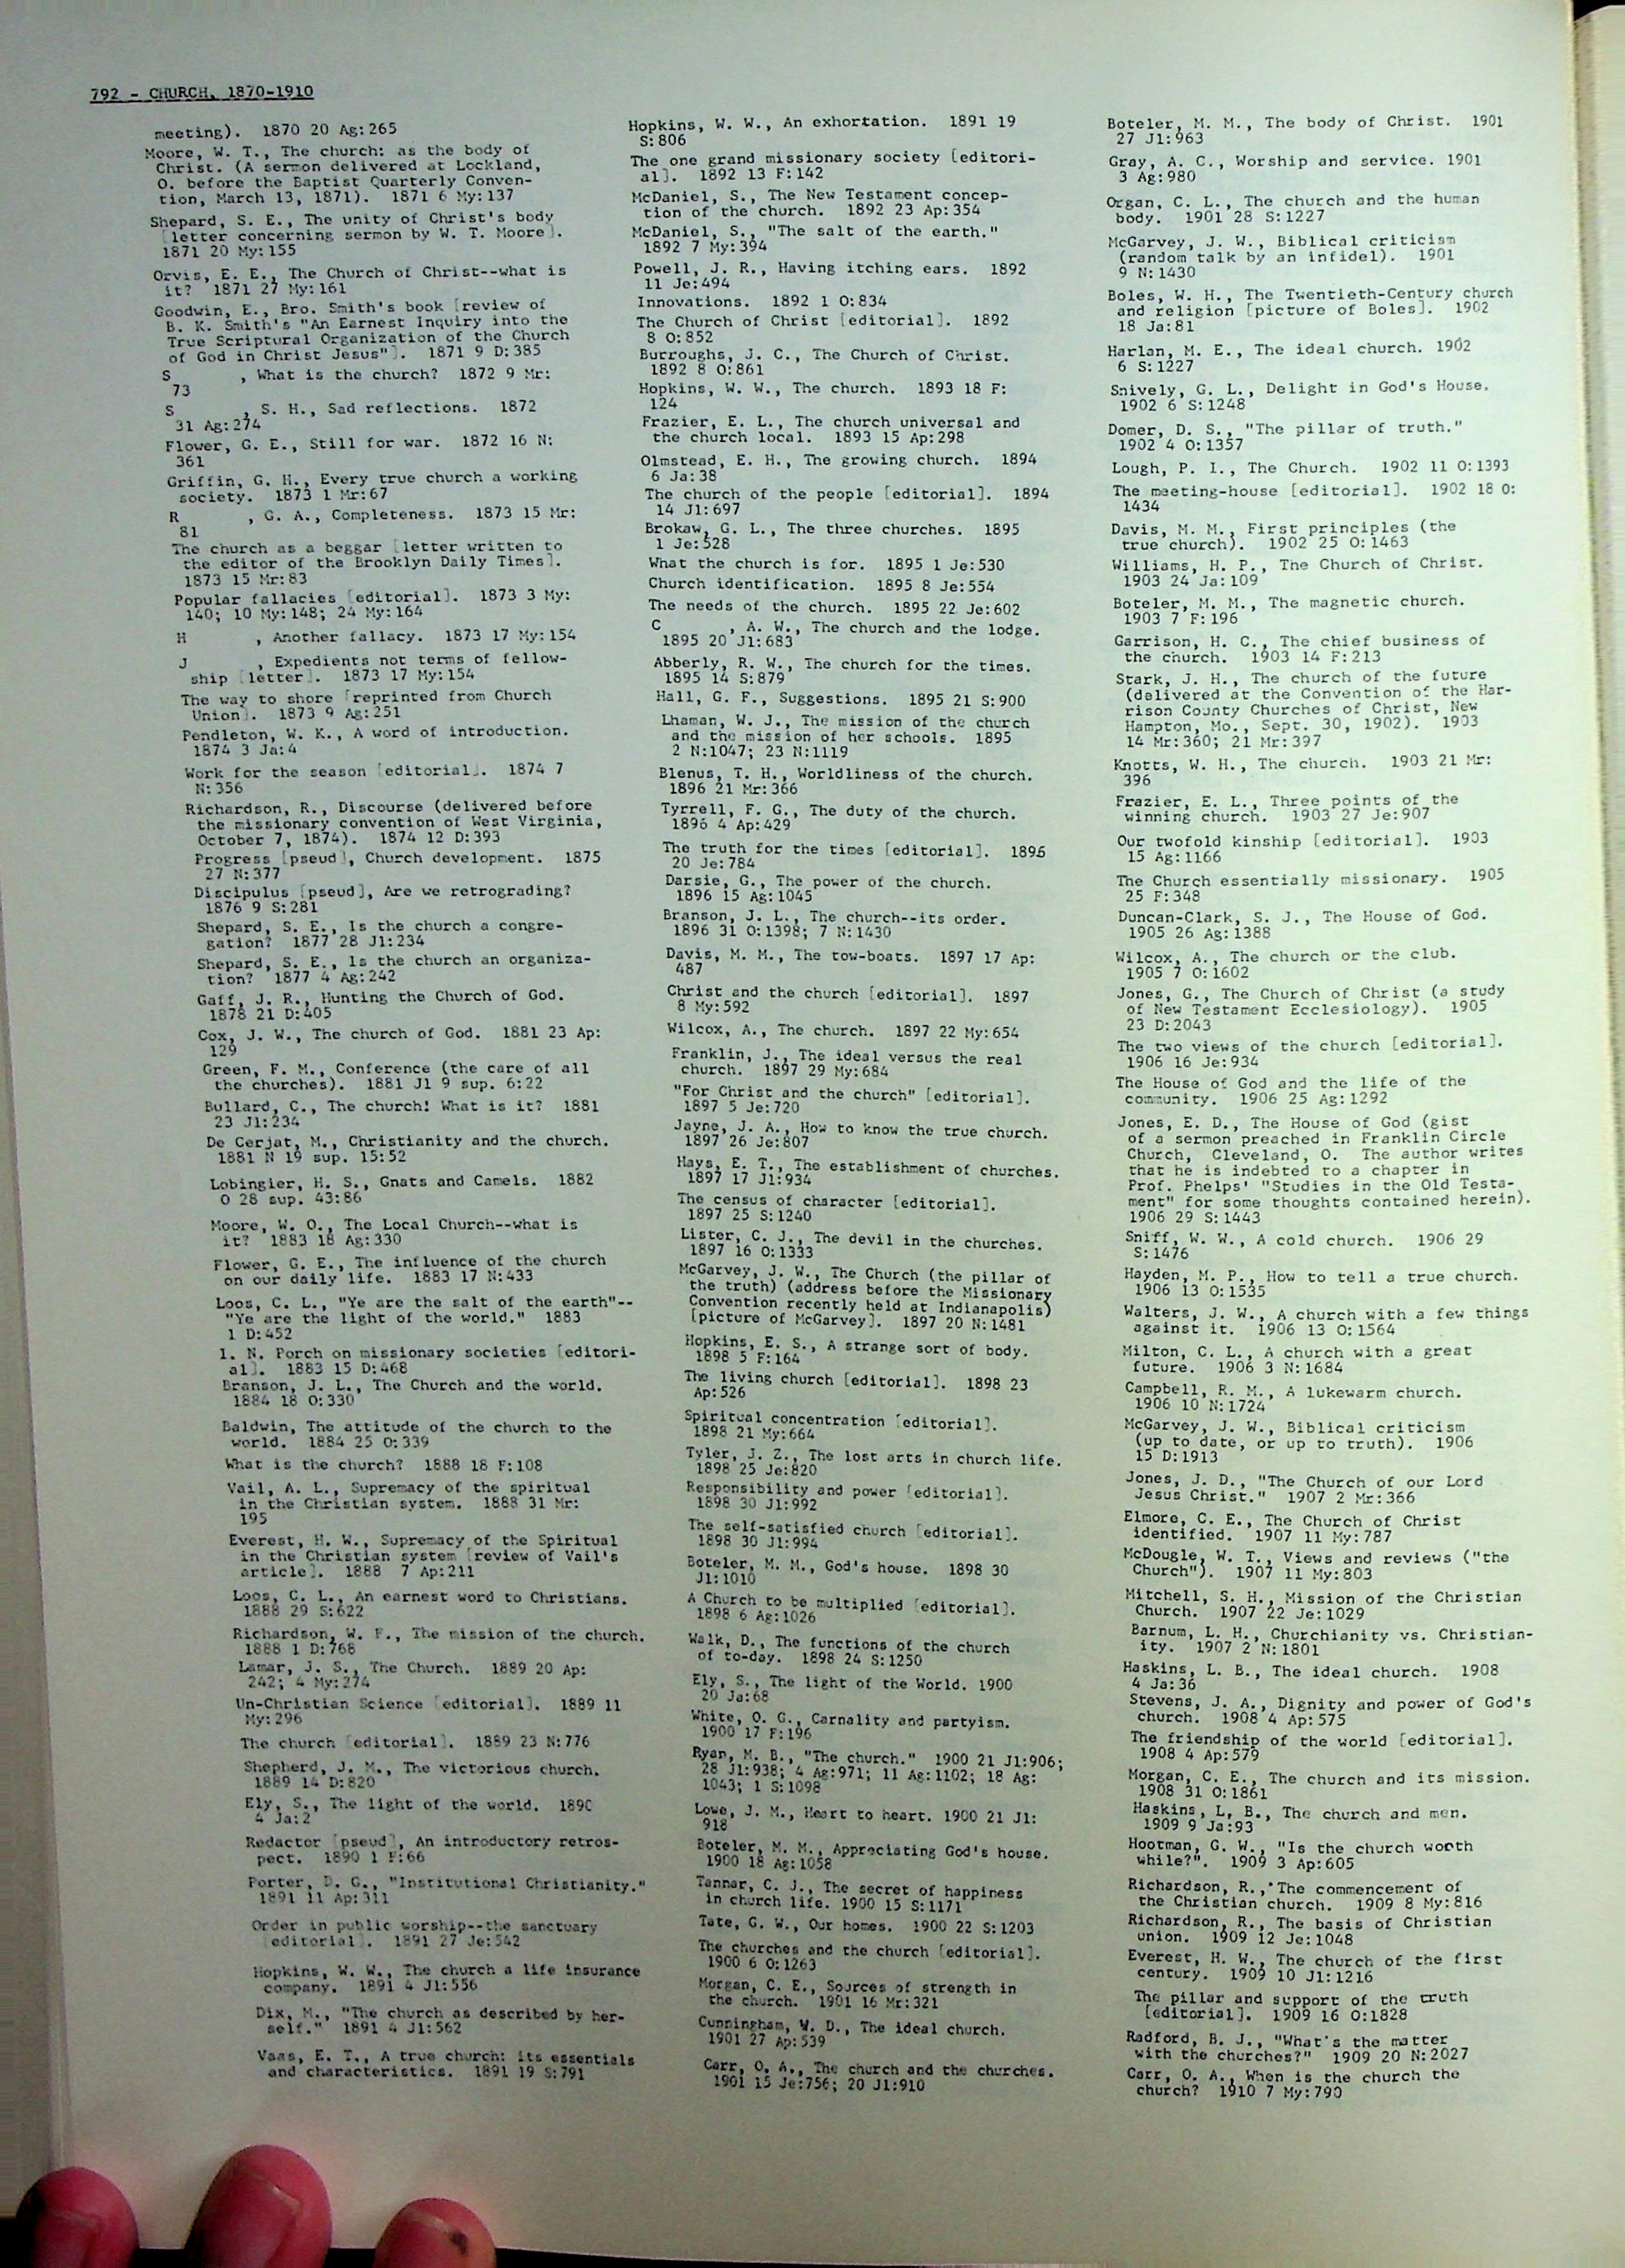 792 - CHURCH, 1870-1910
meeting). 1870 20 Ag:265
Moore, W. T., The church: as the body of
Christ. (A sermon delivered at Lockland,
O. before the Baptist Quarterly Conven-
tion, March 13, 1871). 1871 6 My:137
Shepard, S. E., The unity of Christ's body
[letter concerning sermon by W. T. Moore].
1871 20 My:155
Orvis, E. E., The Church of Christ--what is
it? 1871 27 My:161
Goodwin, E., Bro. Smith's book [review of
B. K. Smith's "An Earnest Inquiry into the
True Scriptural Organization of the Church
of God in Christ Jesus"]. 1871 9 D:385
S , What is the church? 1872 9 Mr:
73
S , S. H., Sad reflections. 1872
31 Ag:274
Flower, G. E., Still for war. 1872 16 N:
361
Griffin, G. H., Every true church a working
society. 1873 1 Mr:67
R , G. A., Completeness. 1873 15 Mr:
81
The church as a beggar [letter written to
the editor of the Brooklyn Daily Times].
1873 15 Mr:83
Popular fallacies [editorial]. 1873 3 My:
140; 10 My:148; 24 My:164
H , Another fallacy. 1873 17 My:154
J , Expedients not terms of fellow-
ship [letter]. 1873 17 My:154
The way to shore [reprinted from Church
Union]. 1873 9 Ag:251
Pendleton, W. K., A word of introduction.
1874 3 Ja:4
Work for the season [editorial]. 1874 7
N:356
Richardson, R., Discourse (delivered before
the missionary convention of West Virginia,
October 7, 1874). 1874 12 D:393
Progress [pseud], Church development. 1875
27 N:377
Discipulus [pseud], Are we retrograding?
1876 9 S:281
Shepard, S. E., Is the church a congre-
gation? 1877 28 Jl:234
Shepard, S. E., Is the church an organiza-
tion? 1877 4 Ag:242
Gaff, J. R., Hunting the Church of God.
1878 21 D:405
Cox, J. W., The church of God. 1881 23 Ap:
129
Green, F. M., Conference (the care of all
the churches). 1881 Jl 9 sup. 6:22
Bullard, C., The church! What is it? 1881
23 Jl:234
De Cerjat, M., Christianity and the church.
1881 N 19 sup. 15:52
Lobingier, H. S., Gnats and Camels. 1882
O 28 sup. 43:86
Moore, W. O., The Local Church--what is
it? 1883 18 Ag:330
Flower, G. E., The influence of the church
on our daily life. 1883 17 N:433
Loos, C. L., "Ye are the salt of the earth"--
"Ye are the light of the world." 1883
1 D:452
I. N. Porch on missionary societies [editori-
al]. 1883 15 D:468
Branson, J. L., The Church and the world.
1884 18 O:330
Baldwin, The attitude of the church to the
world. 1884 25 O:339
What is the church? 1888 18 F:108
Vail, A. L., Supremacy of the spiritual
in the Christian system. 1888 31 Mr:
195
Everest, H. W., Supremacy of the Spiritual
in the Christian system [review of Vail's
article]. 1888 7 Ap:211
Loos, C. L., An earnest word to Christians.
1888 29 S:622
Richardson, W. F., The mission of the church.
1888 1 D:768
Lamar, J. S., The Church. 1889 20 Ap:
242; 4 My:274
Un-Christian Science [editorial]. 1889 11
My:296
The church [editorial]. 1889 23 N:776
Shepherd, J. M., The victorious church.
1889 14 D:820
Ely, S., The light of the world. 1890
4 Ja:2
Redactor [pseud], An introductory retros-
pect. 1890 1 F:66
Porter, D. G., "Institutional Christianity."
1891 11 Ap:311
Order in public worship--the sanctuary
[editorial]. 1891 27 Je:542
Hopkins, W. W., The church a life insurance
company. 1891 4 Jl:556
Dix, M., "The church as described by her-
self." 1891 4 Jl:562
Vaas, E. T., A true church: its essentials
and characteristics. 1891 19 S:791
Hopkins, W. W., An exhortation. 1891 19
S:806
The one grand missionary society [editori-
al]. 1892 13 F:142
McDaniel, S., The New Testament concep-
tion of the church. 1892 23 Ap:354
McDaniel, S., "The salt of the earth."
1892 7 My:394
Powell, J. R., Having itching ears. 1892
11 Je:494
Innovations. 1892 1 O:834
The Church of Christ [editorial]. 1892
8 O:852
Burroughs, J. C., The Church of Christ.
1892 8 O:861
Hopkins, W. W., The church. 1893 18 F:
124
Frazier, E. L., The church universal and
the church local. 1893 15 Ap:298
Olmstead, E. H., The growing church. 1894
6 Ja:38
The church of the people [editorial]. 1894
14 Jl:697
Brokaw, G. L., The three churches. 1895
1 Je:528
What the church is for. 1895 1 Je:530
Church identification. 1895 8 Je:554
The needs of the church. 1895 22 Je:602
C , A. W., The church and the lodge.
1895 20 Jl:683
Abberly, R. W., The church for the times.
1895 14 S:879
Hall, G. F., Suggestions. 1895 21 S:900
Lhaman, W. J., The mission of the church
and the mission of her schools. 1895
2 N:1047; 23 N:1119
Blenus, T. H., Worldliness of the church.
1896 21 Mr:366
Tyrrell, F. G., The duty of the church.
1896 4 Ap:429
The truth for the times [editorial]. 1896
20 Je:784
Darsie, G., The power of the church.
1896 15 Ag:1045
Branson, J. L., The church--its order.
1896 31 O:1398; 7 N:1430
Davis, M. M., The tow-boats. 1897 17 Ap:
487
Christ and the church [editorial]. 1897
8 My:592
Wilcox, A., The church. 1897 22 My:654
Franklin, J., The ideal versus the real
church. 1897 29 My:684
"For Christ and the church" [editorial].
1897 5 Je:720
Jayne, J. A., How to know the true church.
1897 26 Je:807
Hays, E. T., The establishment of churches.
1897 17 Jl:934
The census of character [editorial].
1897 25 S:1240
Lister, C. J., The devil in the churches.
1897 16 O:1333
McGarvey, J. W., The Church (the pillar of
the truth) (address before the Missionary
Convention recently held at Indianapolis)
[picture of McGarvey]. 1897 20 N:1481
Hopkins, E. S., A strange sort of body.
1898 5 F:164
The living church [editorial]. 1898 23
Ap:526
Spiritual concentration [editorial].
1898 21 My:664
Tyler, J. Z., The lost arts in church life.
1898 25 Je:820
Responsibility and power [editorial].
1898 30 Jl:992
The self-satisfied church [editorial].
1898 30 Jl:994
Boteler, M. M., God's house. 1898 30
Jl:1010
A Church to be multiplied [editorial].
1898 6 Ag:1026
Walk, D., The functions of the church
of to-day. 1898 24 S:1250
Ely, S., The light of the World. 1900
20 Ja:68
White, O. G., Carnality and partyism.
1900 17 F:196
Ryan, M. B., "The church." 1900 21 Jl:906;
28 Jl:938; 4 Ag:971; 11 Ag:1102; 18 Ag:
1043; 1 S:1098
Lowe, J. M., Heart to heart. 1900 21 Jl:
918
Boteler, M. M., Appreciating God's house.
1900 18 Ag:1058
Tannar, C. J., The secret of happiness
in church life. 1900 15 S:1171
Tate, G. W., Our homes. 1900 22 S:1203
The churches and the church [editorial].
1900 6 O:1263
Morgan, C. E., Sources of strength in
the church. 1901 16 Mr:321
Cunningham, W. D., The ideal church.
1901 27 Ap:539
Carr, O. A., The church and the churches.
1901 15 Je:756; 20 Jl:910
Boteler, M. M., The body of Christ. 1901
27 Jl:963
Gray, A. C., Worship and service. 1901
3 Ag:980
Organ, C. L., The church and the human
body. 1901 28 S:1227
McGarvey, J. W., Biblical criticism
(random talk by an infidel). 1901
9 N:1430
Boles, W. H., The Twentieth-Century church
and religion [picture of Boles]. 1902
18 Ja:81
Harlan, M. E., The ideal church. 1902
6 S:1227
Snively, G. L., Delight in God's House.
1902 6 S:1248
Domer, D. S., "The pillar of truth."
1902 4 O:1357
Lough, P. I., The Church. 1902 11 O:1393
The meeting-house [editorial]. 1902 18 O:
1434
Davis, M. M., First principles (the
true church). 1902 25 O:1463
Williams, H. P., The Church of Christ.
1903 24 Ja:109
Boteler, M. M., The magnetic church.
1903 7 F:196
Garrison, H. C., The chief business of
the church. 1903 14 F:213
Stark, J. H., The church of the future
(delivered at the Convention of the Har-
rison County Churches of Christ, New
Hampton, Mo., Sept. 30, 1902). 1903
14 Mr:360; 21 Mr:397
Knotts, W. H., The church. 1903 21 Mr:
396
Frazier, E. L., Three points of the
winning church. 1903 27 Je:907
Our twofold kinship [editorial]. 1903
15 Ag:1166
The Church essentially missionary. 1905
25 F:348
Duncan-Clark, S. J., The House of God.
1905 26 Ag:1388
Wilcox, A., The church or the club.
1905 7 O:1602
Jones, G., The Church of Christ (a study
of New Testament Ecclesiology). 1905
23 D:2043
The two views of the church [editorial].
1906 16 Je:934
The House of God and the life of the
community. 1906 25 Ag:1292
Jones, E. D., The House of God (gist
of a sermon preached in Franklin Circle
Church, Cleveland, O. The author writes
that he is indebted to a chapter in
Prof. Phelps' "Studies in the Old Testa-
ment" for some thoughts contained herein).
1906 29 S:1443
Sniff, W. W., A cold church. 1906 29
S:1476
Hayden, M. P., How to tell a true church.
1906 13 O:1535
Walters, J. W., A church with a few things
against it. 1906 13 O:1564
Milton, C. L., A church with a great
future. 1906 3 N:1684
Campbell, R. M., A lukewarm church.
1906 10 N:1724
McGarvey, J. W., Biblical criticism
(up to date, or up to truth). 1906
15 D:1913
Jones, J. D., "The Church of our Lord
Jesus Christ." 1907 2 Mr:366
Elmore, C. E., The Church of Christ
identified. 1907 11 My:787
McDougle, W. T., Views and reviews ("the
Church"). 1907 11 My:803
Mitchell, S. H., Mission of the Christian
Church. 1907 22 Je:1029
Barnum, L. H., Churchianity vs. Christian-
ity. 1907 2 N:1801
Haskins, L. B., The ideal church. 1908
4 Ja:36
Stevens, J. A., Dignity and power of God's
church. 1908 4 Ap:575
The friendship of the world [editorial].
1908 4 Ap:579
Morgan, C. E., The church and its mission.
1908 31 O:1861
Haskins, L. B., The church and men.
1909 9 Ja:93
Hootman, G. W., "Is the church worth
while?". 1909 3 Ap:605
Richardson, R., The commencement of
the Christian church. 1909 8 My:816
Richardson, R., The basis of Christian
union. 1909 12 Je:1048
Everest, H. W., The church of the first
century. 1909 10 Jl:1216
The pillar and support of the truth
[editorial]. 1909 16 O:1828
Radford, B. J., "What's the matter
with the churches?" 1909 20 N:2027
Carr, O. A., When is the church the
church? 1910 7 My:790